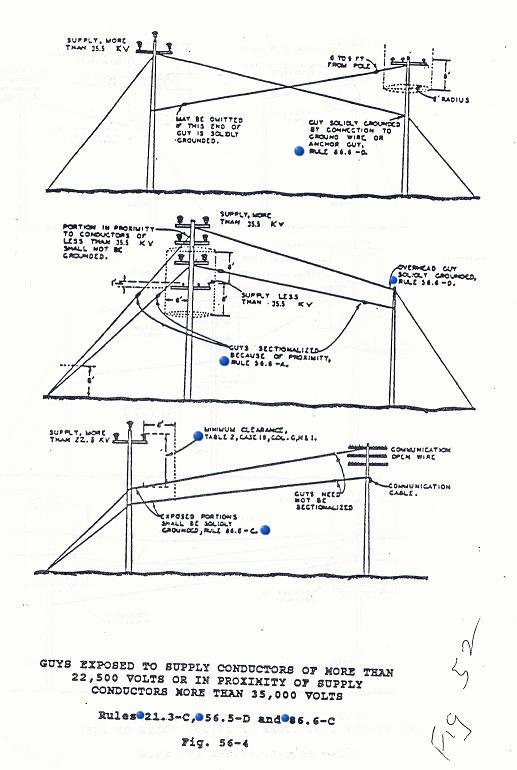 SUPPLY, MORE
THAN 35.5 KV
6 TO 9 FT.
FROM POLE
6'
6' RADIUS
MAY BE OMITTED
IF THIS END OF
GUY IS SOLIDLY
GROUNDED.
GUY SOLIDLY GROUNDED
BY CONNECTION TO
GROUND WIRE OR
ANCHOR GUY,
RULE 86.6-D.
SUPPLY, MORE
THAN 35.5 KV
PORTION IN PROXIMITY
TO CONDUCTORS OF
LESS THAN 35.5 KV
SHALL NOT BE
GROUNDED.
OVERHEAD GUY
SOLIDLY GROUNDED,
RULE 56.6-D.
6'
6'
6'
SUPPLY LESS
THAN 35.5 KV
GUYS SECTIONALIZED
BECAUSE OF PROXIMITY,
RULE 56.6-A.
8'
SUPPLY, MORE
THAN 22.5 KV
6'
MINIMUM CLEARANCE,
TABLE 2, CASE 19, COL. G, H & I.
COMMUNICATION
OPEN WIRE
GUYS NEED
NOT BE
SECTIONALIZED
COMMUNICATION
CABLE.
EXPOSED PORTIONS
SHALL BE SOLIDLY
GROUNDED, RULE 86.6-C.
GUYS EXPOSED TO SUPPLY CONDUCTORS OF MORE THAN
22,500 VOLTS OR IN PROXIMITY OF SUPPLY
CONDUCTORS MORE THAN 35,000 VOLTS
Rules 21.3-C, 56.5-D and 86.6-C
Fig. 56-4
Fig 52